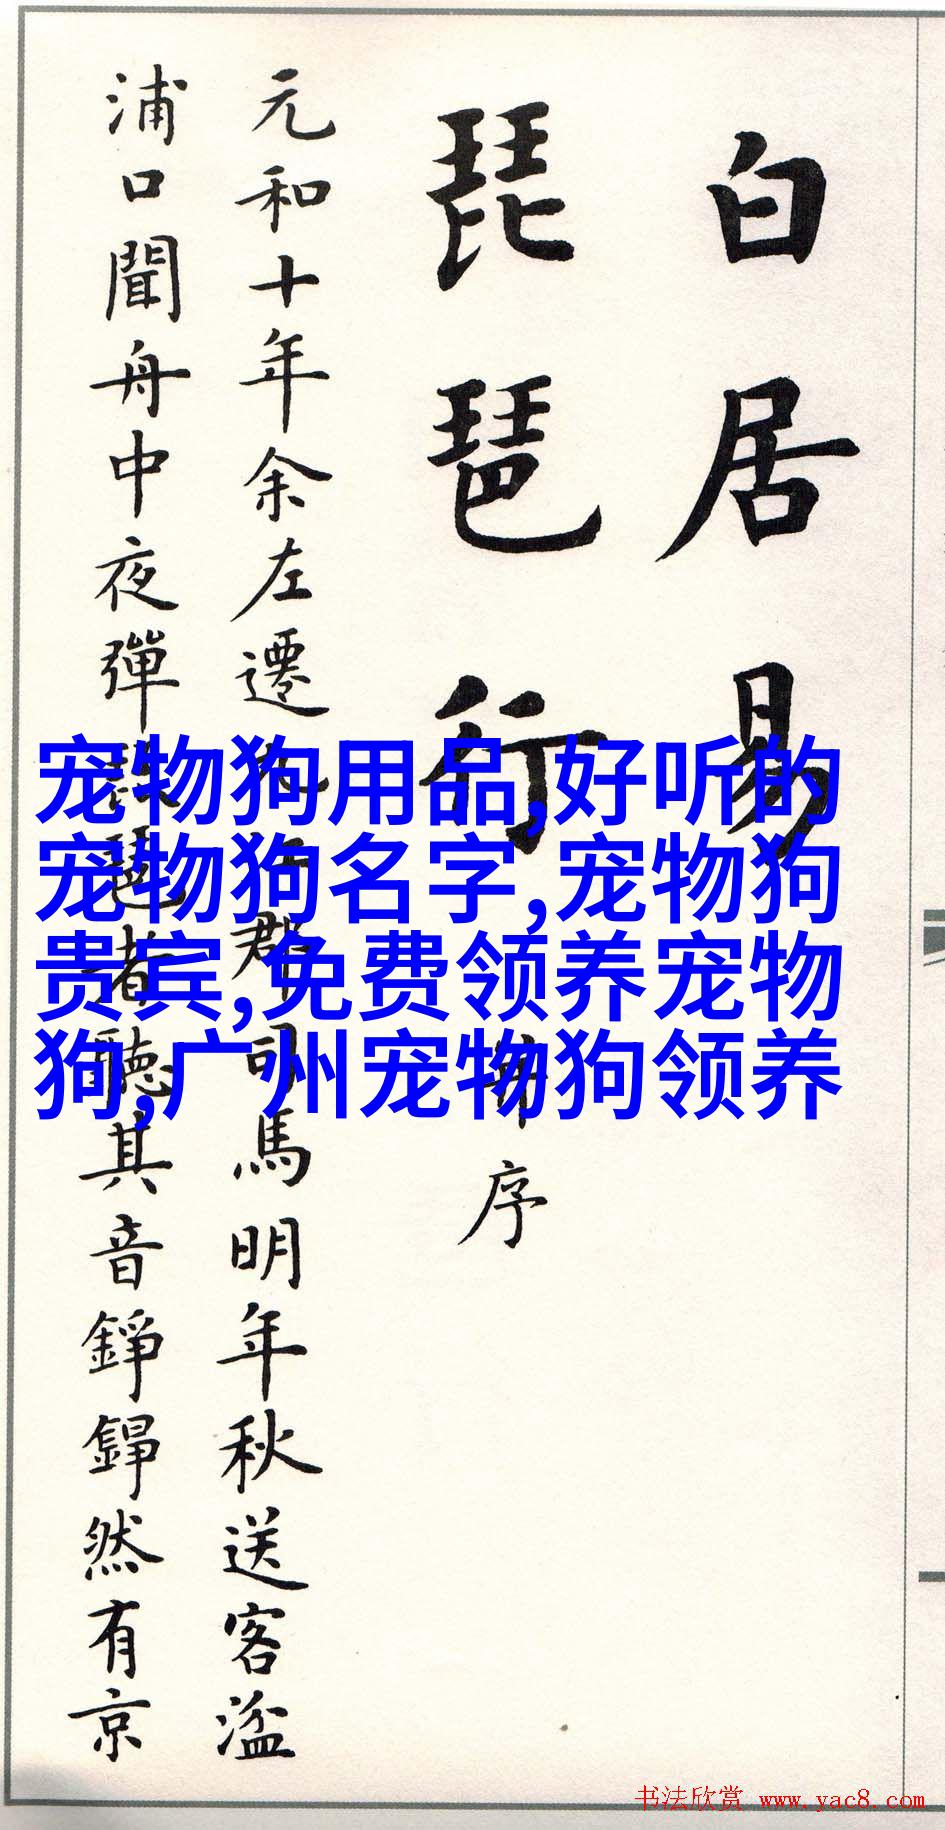 白居易
琵琶行
序
元和十年余左遷郡司馬明年秋送客湓
浦口聞舟中夜彈琵琶者聽其音錚錚然有京
宠物狗用品,好听的
宠物狗名字,宠物狗
贵宾,免费领养宠物
狗,广州宠物狗领养
书法欣赏 www.yac8.com